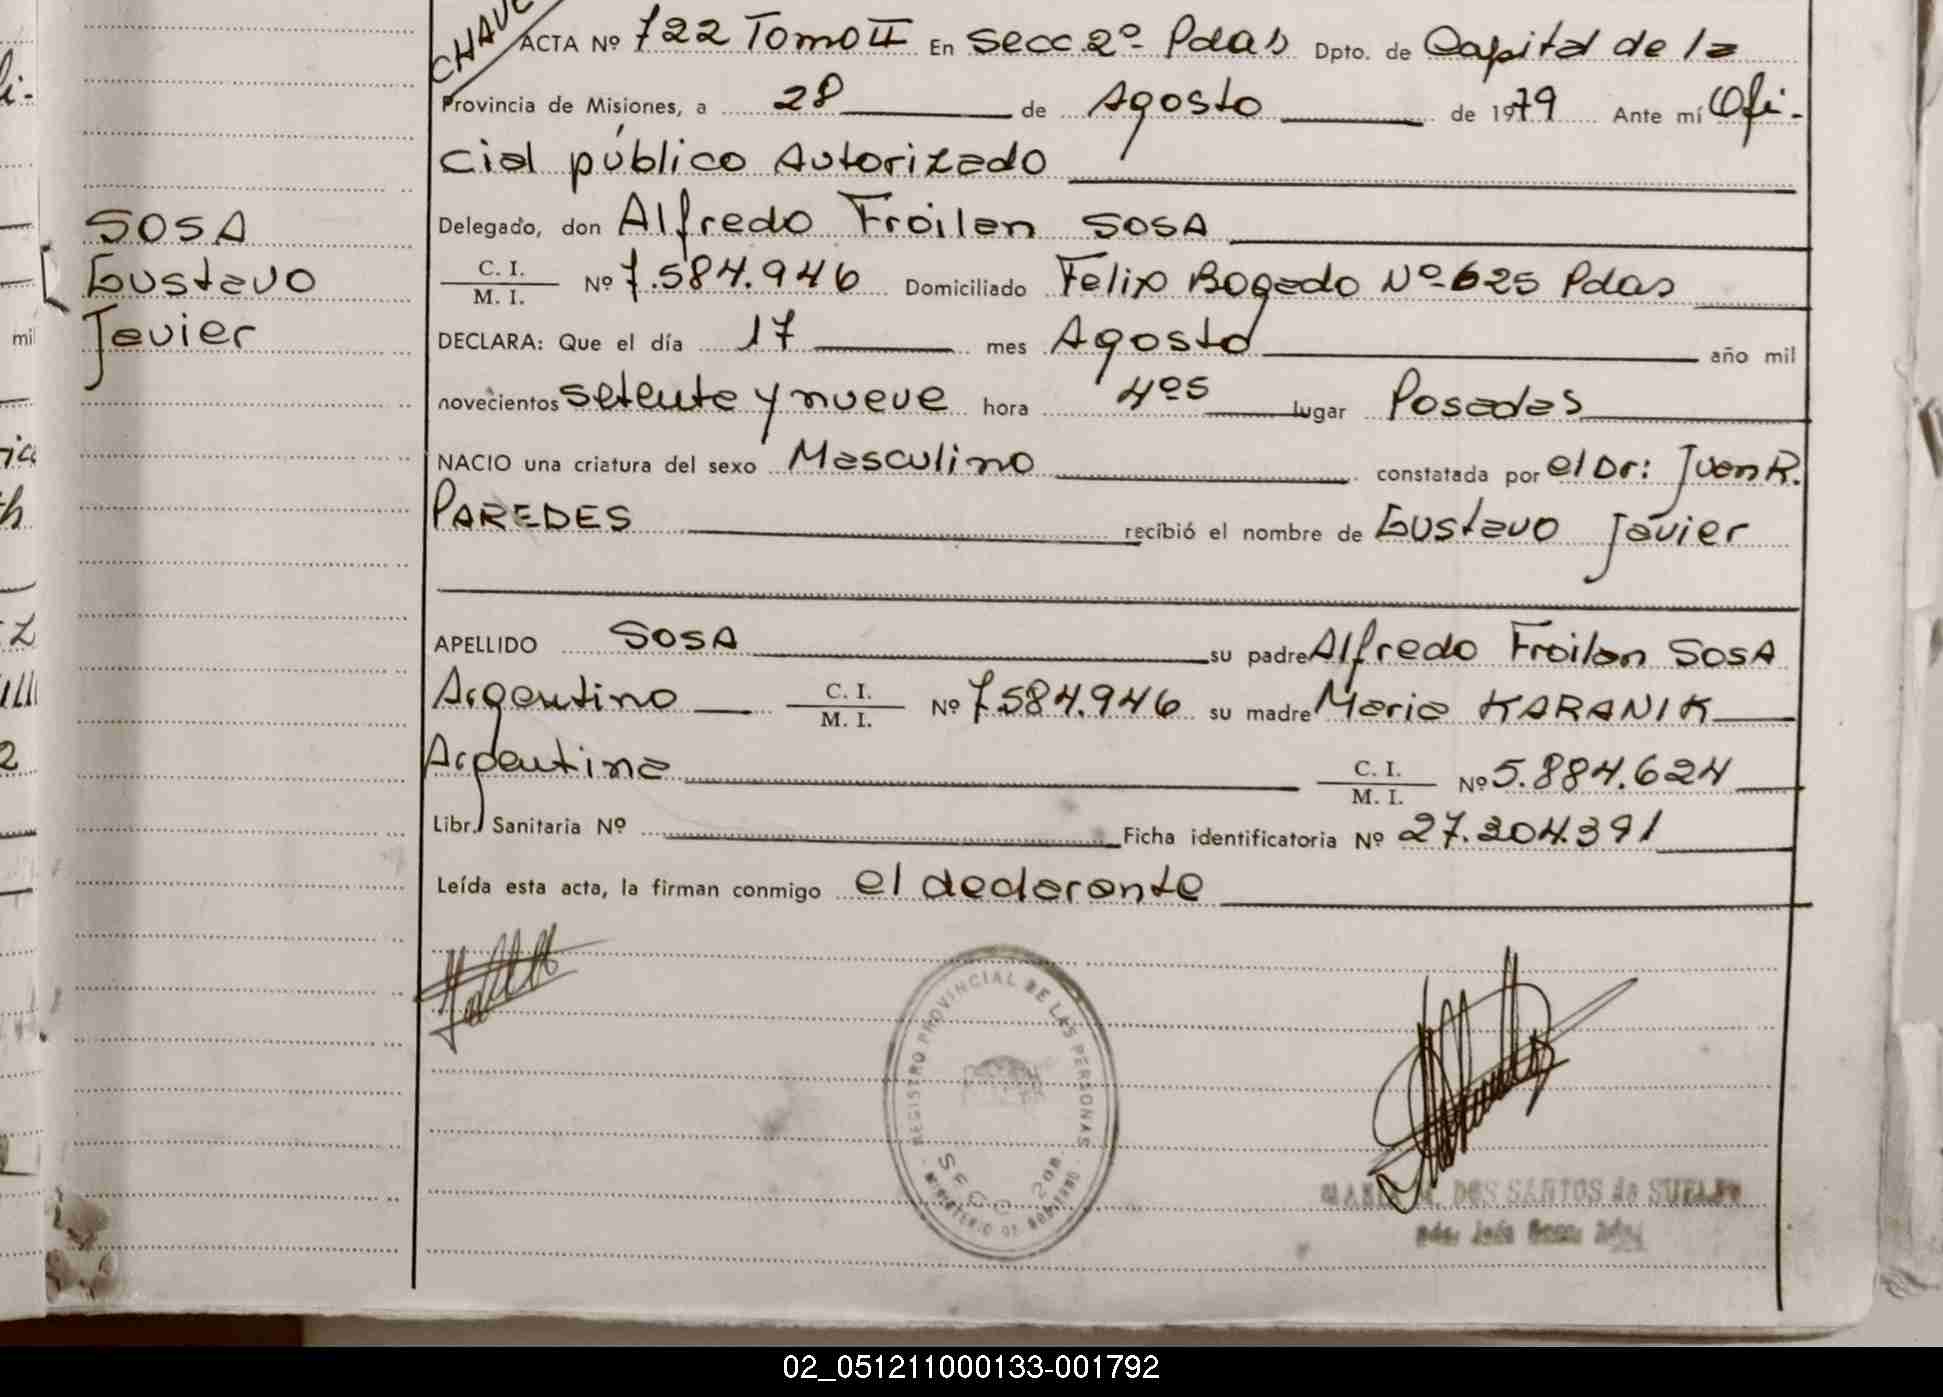 CHAVE
ACTA Nº 722 Tomo II En secc. 2º Pdas Dpto. de Capital de la
Provincia de Misiones, a 28 de Agosto de 1979 Ante mí Ofi-
cial público Autorizado
SOSA
Gustavo
Javier
Delegado, don Alfredo Froilan SOSA
C. I.
M. I. Nº 7.584.946 Domiciliado Felix Bogado Nº 625 Pdas
DECLARA: Que el día 17 mes Agosto año mil
novecientos setenta y nueve hora 4ºs lugar Posadas
NACIO una criatura del sexo Masculino constatada por el Dr: Juan R.
PAREDES recibió el nombre de Gustavo Javier
APELLIDO SOSA su padre Alfredo Froilan SOSA
Argentino C. I.
M. I. Nº 7.584.946 su madre Maria KARANIK
Argentina C. I.
M. I. Nº 5.884.624
Libr. Sanitaria Nº Ficha identificatoria Nº 27.204.391
Leída esta acta, la firman conmigo el declarante
REGISTRO PROVINCIAL DE LAS PERSONAS
SECC. 2DA.
MINISTERIO DE GOBIERNO
DOS SANTOS de
mil
02_051211000133-001792